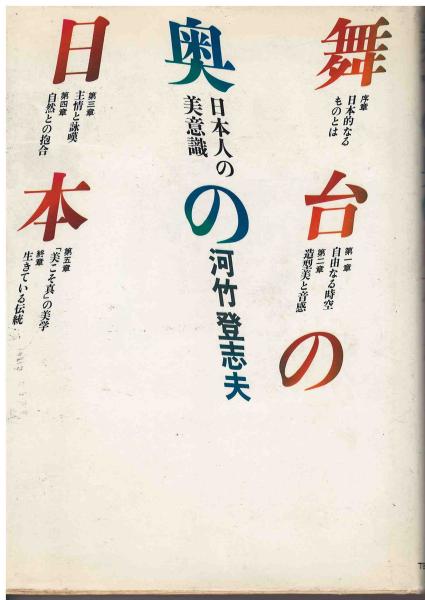 舞台の
序章
日本的なる
ものとは
第一章
自由なる時空
第二章
造型美と音感
奥の
日本人の
美意識
河竹登志夫
日本
第三章
主情と詠嘆
第四章
自然との抱合
第五章
「美こそ真」の美学
終章
生きている伝統